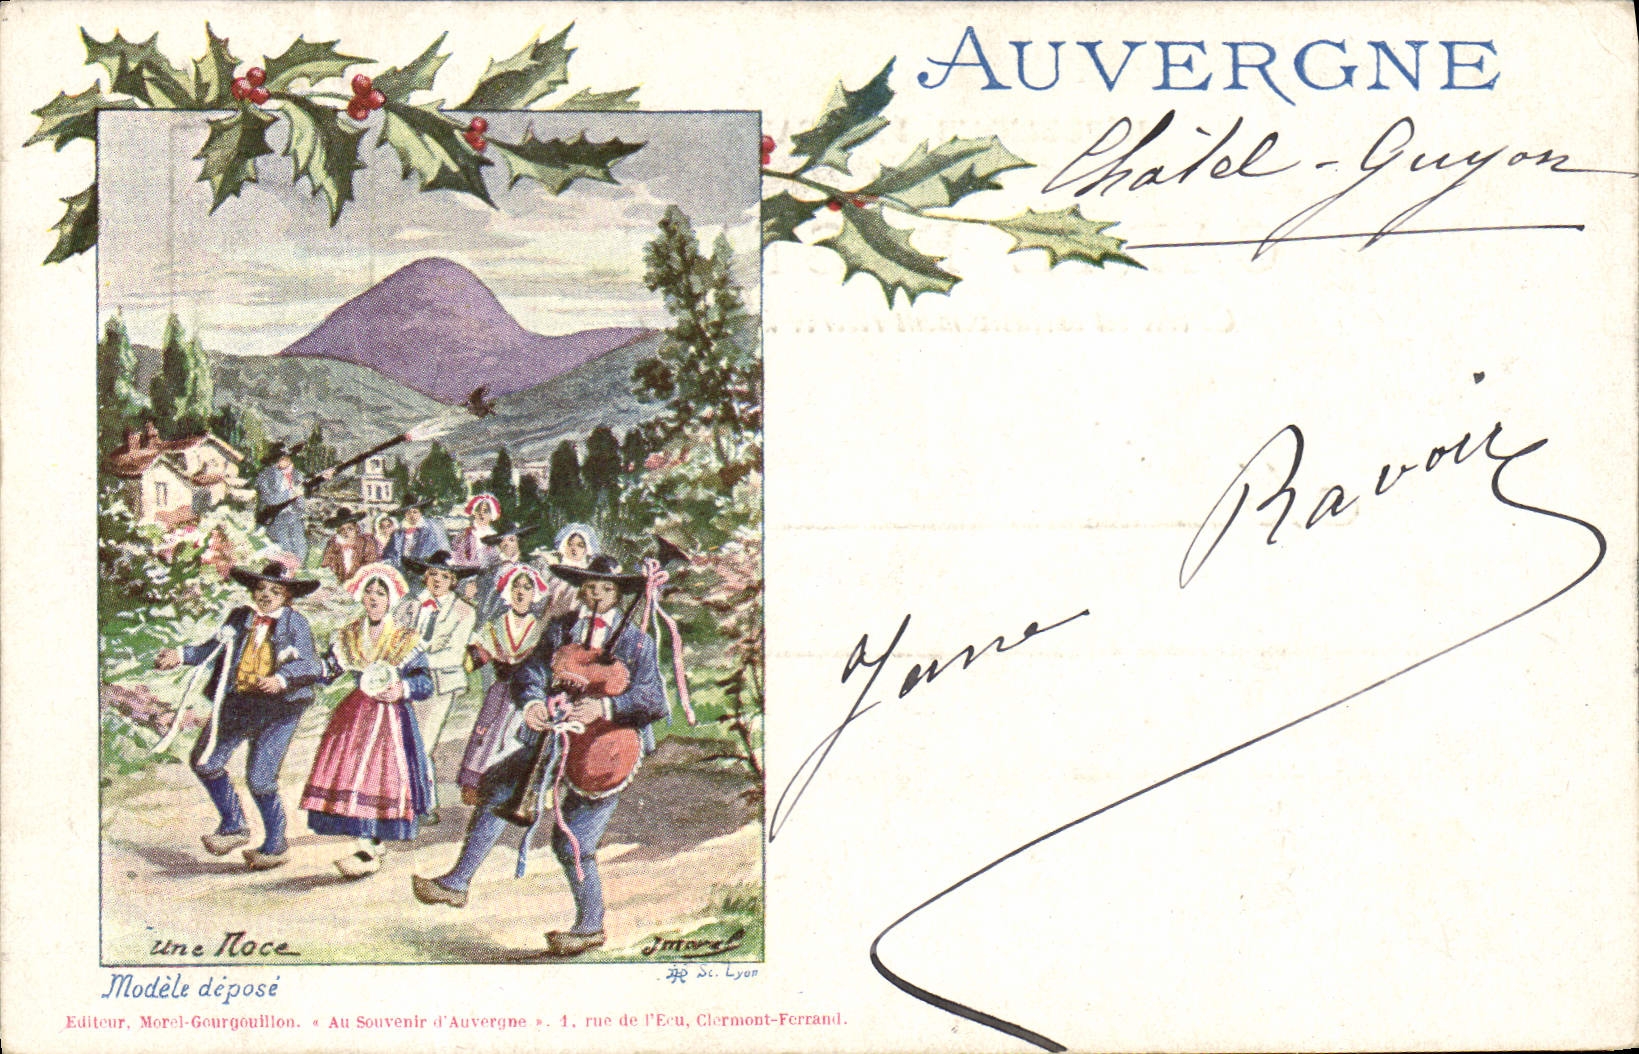 AUVERGNE
Châtel-Guyon
Ravoir
une Noce
JMorel
Sc. Lyon
Modèle déposé
Editeur, Morel-Gourgouillon. « Au Souvenir d'Auvergne ». 1, rue de l'Ecu, Clermont-Ferrand.